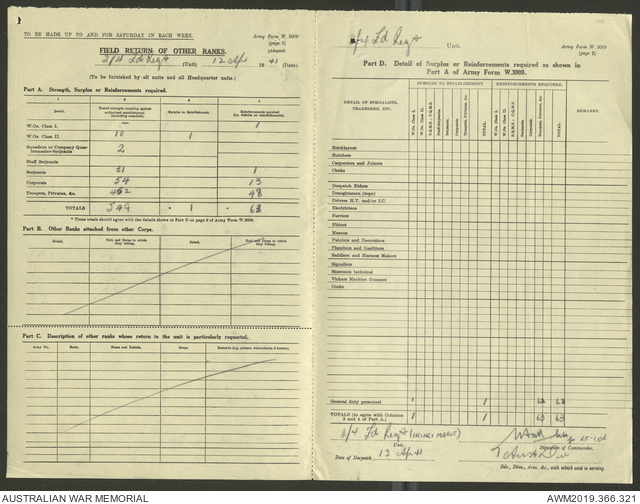 TO BE MADE UP TO AND FOR SATURDAY IN EACH WEEK.
Army Form W. 3009
(page 1)
(Adapted)
FIELD RETURN OF OTHER RANKS.
2/4 Ld Regt (Unit) 12 Apr 1941 (Date)
(To be furnished by all units and all Headquarter units)
Part A. Strength, Surplus or Reinforcements required.
1 2 3 4
Detail. Posted strength counting against authorized establishment (excluding attached). Surplus to Establishment. Reinforcements required (i.e. deficits on establishment).
W.Os. Class I. — 1
W.Os. Class II. 10 1
Squadron or Company Quartermaster-Serjeants 2
Staff Serjeants
Serjeants 31 1
Corporals 54 13
Troopers, Privates, &c. 452 48
TOTALS 549 * 1 * 63
* These totals should agree with the details shown in Part D on page 2 of Army Form W.3009.
Part B. Other Ranks attached from other Corps.
Detail. Unit and Corps to which they belong. Detail. Unit and Corps to which they belong.
Part C. Description of other ranks whose return to the unit is particularly requested.
Army No. Rank. Name and Initials. Corps. Remarks (e.g. present whereabouts if known).
2/4 Ld Regt Unit.
Army Form W. 3009
(page 2)
Part D. Detail of Surplus or Reinforcements required as shown in
Part A of Army Form W.3009.
DETAIL OF SPECIALISTS, TRADESMEN, ETC.
SURPLUS TO ESTABLISHMENT. REINFORCEMENTS REQUIRED.
W.Os. Class I. W.Os. Class II. S.Q.M.S.; C.Q.M.S. Staff Serjeants. Serjeants. Corporals. Troopers, Privates, &c. TOTAL W.Os. Class I. W.Os. Class II. S.Q.M.S.; C.Q.M.S. Serjeants. Corporals. Troopers, Privates, &c. TOTAL REMARKS.
Bricklayers
Butchers
Carpenters and Joiners
Clerks
Despatch Riders
Draughtsmen (topo)
Drivers H.T. and/or I.C.
Electricians
Farriers
Fitters
Masons
Painters and Decorators
Plumbers and Gasfitters
Saddlers and Harness Makers
Signallers
Storemen technical
Vickers Machine Gunners
Cooks
General duty personnel 1 1 63 63
TOTALS (to agree with Columns 3 and 4 of Part A.) 1 1 63 63
2/4 Ld Regt
Unit.
Lt-Col
Signature of Commander.
Date of Despatch 12 Apr 41
7 Aust Div
Bde., Divn., Area, &c., with which unit is serving.
AUSTRALIAN WAR MEMORIAL
AWM2019.366.321